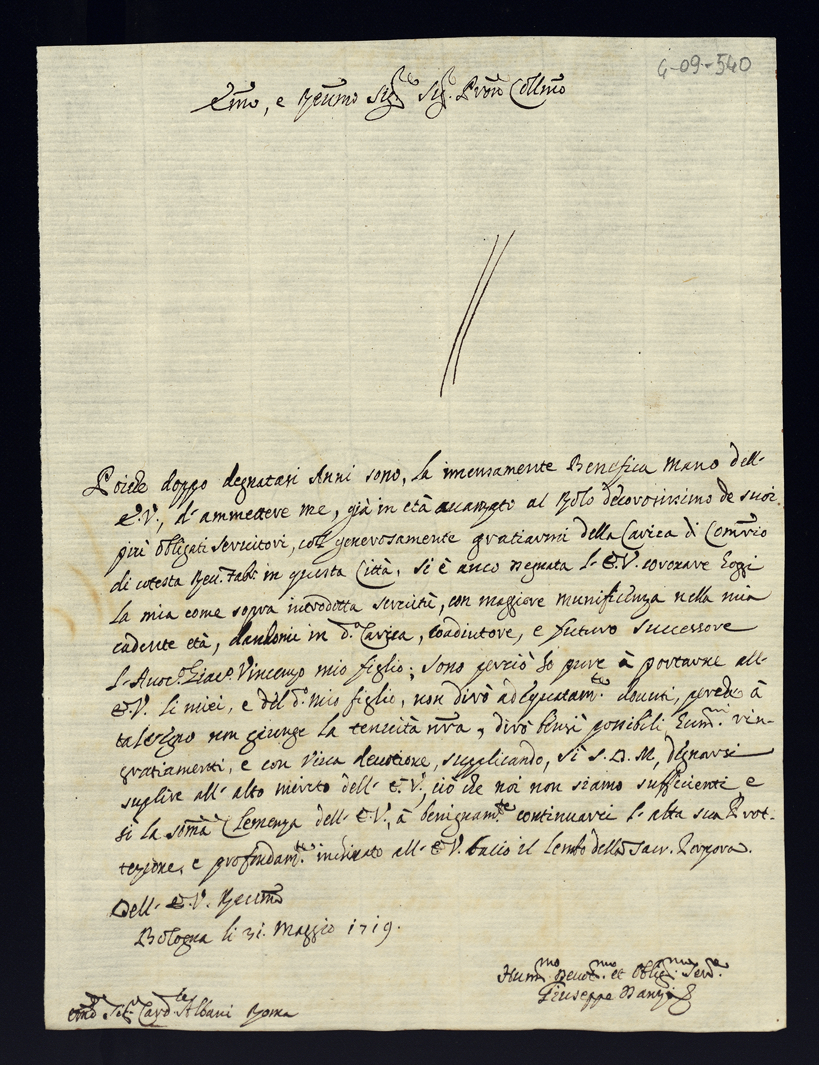 4-09-540
Emo, e Reumo Sig.r Sig. Pron Collmo
Poiche doppo degnatasi Anni sono, la imensamente Benefica Mano dell-
E.V., d'ammettere me, già in età avanzato al Rolo decorosissimo de suoi
più obligati Servitori, col generosamente gratiarmi della Carica di Commrio
di cotesta Reu. Fab. in questa Città, si è anco degnata l-E.V. coronare hoggi
la mia come sopra introdotta servitù, con maggiore munificenza nella mia
cadente età, dandomi in d.a Carica, Coadiutore, e futuro successore
l-Auoc.o Giac.o Vincenzo mio figlio; sono perciò Io pure à portarne all-
E.V. li miei, e del d.o mio figlio, non dirò adequatam.te douuti, perche à
tal segno non giunge la tenuità nrã, dirò bensì possibili Eum.mi rin-
gratiamenti, e con viva deuotione, supplicando, si S.D.M. dignarsi
suplire all-alto merito dell-E.V. ciò che noi non siamo sufficienti, e
si la somà Clemenza dell-E.V., à benignam.te continuarci l-alta sua Prot-
tezione, e profondam.te inclinato all-E.V. bacio il lembo della Sacr. Porpora.
Dell-E.V. Reumã
Bologna li 31. Maggio 1719.
Hum.mo Deuot.mo et Oblig.mo Serv.e
Giuseppe
Sig. Card.le Albani Roma